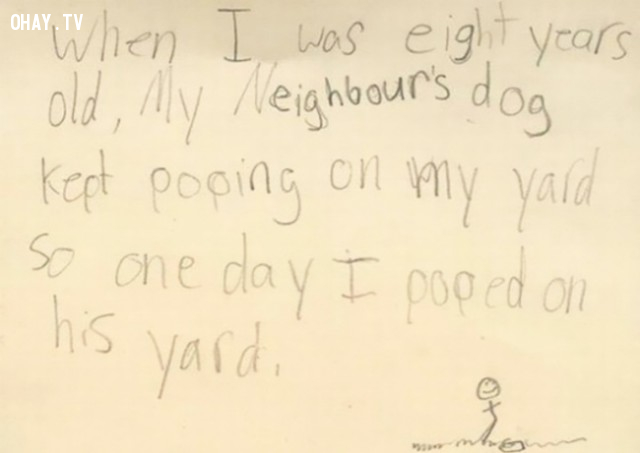 OHAY.TV
When I was eight years
old, My Neighbour's dog
kept pooing on my yard
so one day I pooed on
his yard.